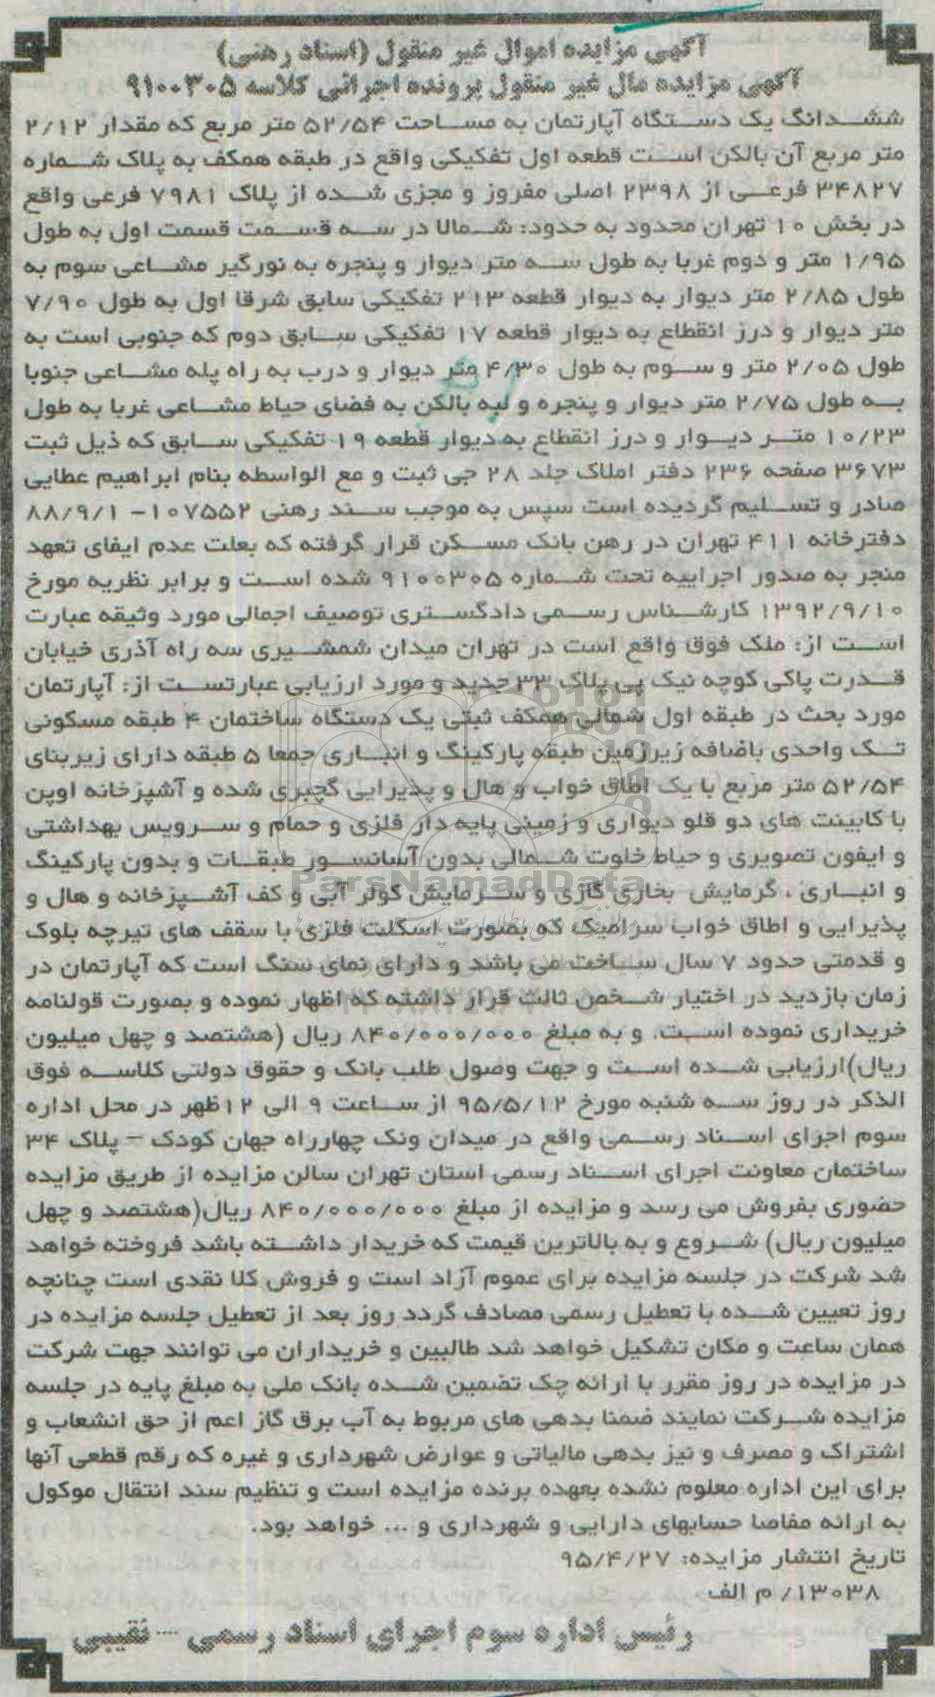 آگهی مزایده اموال غیر منقول (اسناد رهنی)
آگهی مزایده مال غیر منقول پرونده اجرائی کلاسه ۹۱۰۰۳۰۵
ششدانگ یک دستگاه آپارتمان به مساحت ۵۲/۵۴ متر مربع که مقدار ۲/۱۲
متر مربع آن بالکن است قطعه اول تفکیکی واقع در طبقه همکف به پلاک شماره
۳۴۸۲۷ فرعی از ۲۳۹۸ اصلی مفروز و مجزی شده از پلاک ۷۹۸۱ فرعی واقع
در بخش ۱۰ تهران محدود به حدود: شمالا در سه قسمت قسمت اول به طول
۱/۹۵ متر و دوم غربا به طول سه متر دیوار و پنجره به نورگیر مشاعی سوم به
طول ۲/۸۵ متر دیوار به دیوار قطعه ۲۱۳ تفکیکی سابق شرقا اول به طول ۷/۹۰
متر دیوار و درز انقطاع به دیوار قطعه ۱۷ تفکیکی سابق دوم که جنوبی است به
طول ۲/۰۵ متر و سوم به طول ۴/۳۰ متر دیوار و درب به راه پله مشاعی جنوبا
به طول ۲/۷۵ متر دیوار و پنجره و لبه بالکن به فضای حیاط مشاعی غربا به طول
۱۰/۲۳ متر دیوار و درز انقطاع به دیوار قطعه ۱۹ تفکیکی سابق که ذیل ثبت
۳۶۷۳ صفحه ۲۳۶ دفتر املاک جلد ۲۸ جی ثبت و مع الواسطه بنام ابراهیم عطایی
صادر و تسلیم گردیده است سپس به موجب سند رهنی ۱۰۷۵۵۲- ۸۸/۹/۱
دفترخانه ۴۱۱ تهران در رهن بانک مسکن قرار گرفته که بعلت عدم ایفای تعهد
منجر به صدور اجراییه تحت شماره ۹۱۰۰۳۰۵ شده است و برابر نظریه مورخ
۱۳۹۲/۹/۱۰ کارشناس رسمی دادگستری توصیف اجمالی مورد وثیقه عبارت
است از: ملک فوق واقع است در تهران میدان شمشیری سه راه آذری خیابان
قدرت پاکی کوچه نیک پی پلاک ۳۳ جدید و مورد ارزیابی عبارتست از: آپارتمان
مورد بحث در طبقه اول شمالی همکف ثبتی یک دستگاه ساختمان ۴ طبقه مسکونی
تک واحدی باضافه زیرزمین طبقه پارکینگ و انباری جمعا ۵ طبقه دارای زیربنای
۵۲/۵۴ متر مربع با یک اطاق خواب و هال و پذیرایی گچبری شده و آشپزخانه اوپن
با کابینت های دو قلو دیواری و زمینی پایه دار فلزی و حمام و سرویس بهداشتی
و ایفون تصویری و حیاط خلوت شمالی بدون آسانسور طبقات و بدون پارکینگ
و انباری ، گرمایش بخاری گازی و سرمایش کولر آبی و کف آشپزخانه و هال و
پذیرایی و اطاق خواب سرامیک که بصورت اسکلت فلزی با سقف های تیرچه بلوک
و قدمتی حدود ۷ سال ساخت می باشد و دارای نمای سنگ است که آپارتمان در
زمان بازدید در اختیار شخص ثالث قرار داشته که اظهار نموده و بصورت قولنامه
خریداری نموده است. و به مبلغ ۸۴۰/۰۰۰/۰۰۰ ریال (هشتصد و چهل میلیون
ریال)ارزیابی شده است و جهت وصول طلب بانک و حقوق دولتی کلاسه فوق
الذکر در روز سه شنبه مورخ ۹۵/۵/۱۲ از ساعت ۹ الی ۱۲ظهر در محل اداره
سوم اجرای اسناد رسمی واقع در میدان ونک چهارراه جهان کودک – پلاک ۳۴
ساختمان معاونت اجرای اسناد رسمی استان تهران سالن مزایده از طریق مزایده
حضوری بفروش می رسد و مزایده از مبلغ ۸۴۰/۰۰۰/۰۰۰ ریال(هشتصد و چهل
میلیون ریال) شروع و به بالاترین قیمت که خریدار داشته باشد فروخته خواهد
شد شرکت در جلسه مزایده برای عموم آزاد است و فروش کلا نقدی است چنانچه
روز تعیین شده با تعطیل رسمی مصادف گردد روز بعد از تعطیل جلسه مزایده در
همان ساعت و مکان تشکیل خواهد شد طالبین و خریداران می توانند جهت شرکت
در مزایده در روز مقرر با ارائه چک تضمین شده بانک ملی به مبلغ پایه در جلسه
مزایده شرکت نمایند ضمنا بدهی های مربوط به آب برق گاز اعم از حق انشعاب و
اشتراک و مصرف و نیز بدهی مالیاتی و عوارض شهرداری و غیره که رقم قطعی آنها
برای این اداره معلوم نشده بعهده برنده مزایده است و تنظیم سند انتقال موکول
به ارائه مفاصا حسابهای دارایی و شهرداری و ... خواهد بود.
تاریخ انتشار مزایده: ۹۵/۴/۲۷
۱۳۰۳۸/ م الف
رئیس اداره سوم اجرای اسناد رسمی --- نقیبی
ParsNamadData